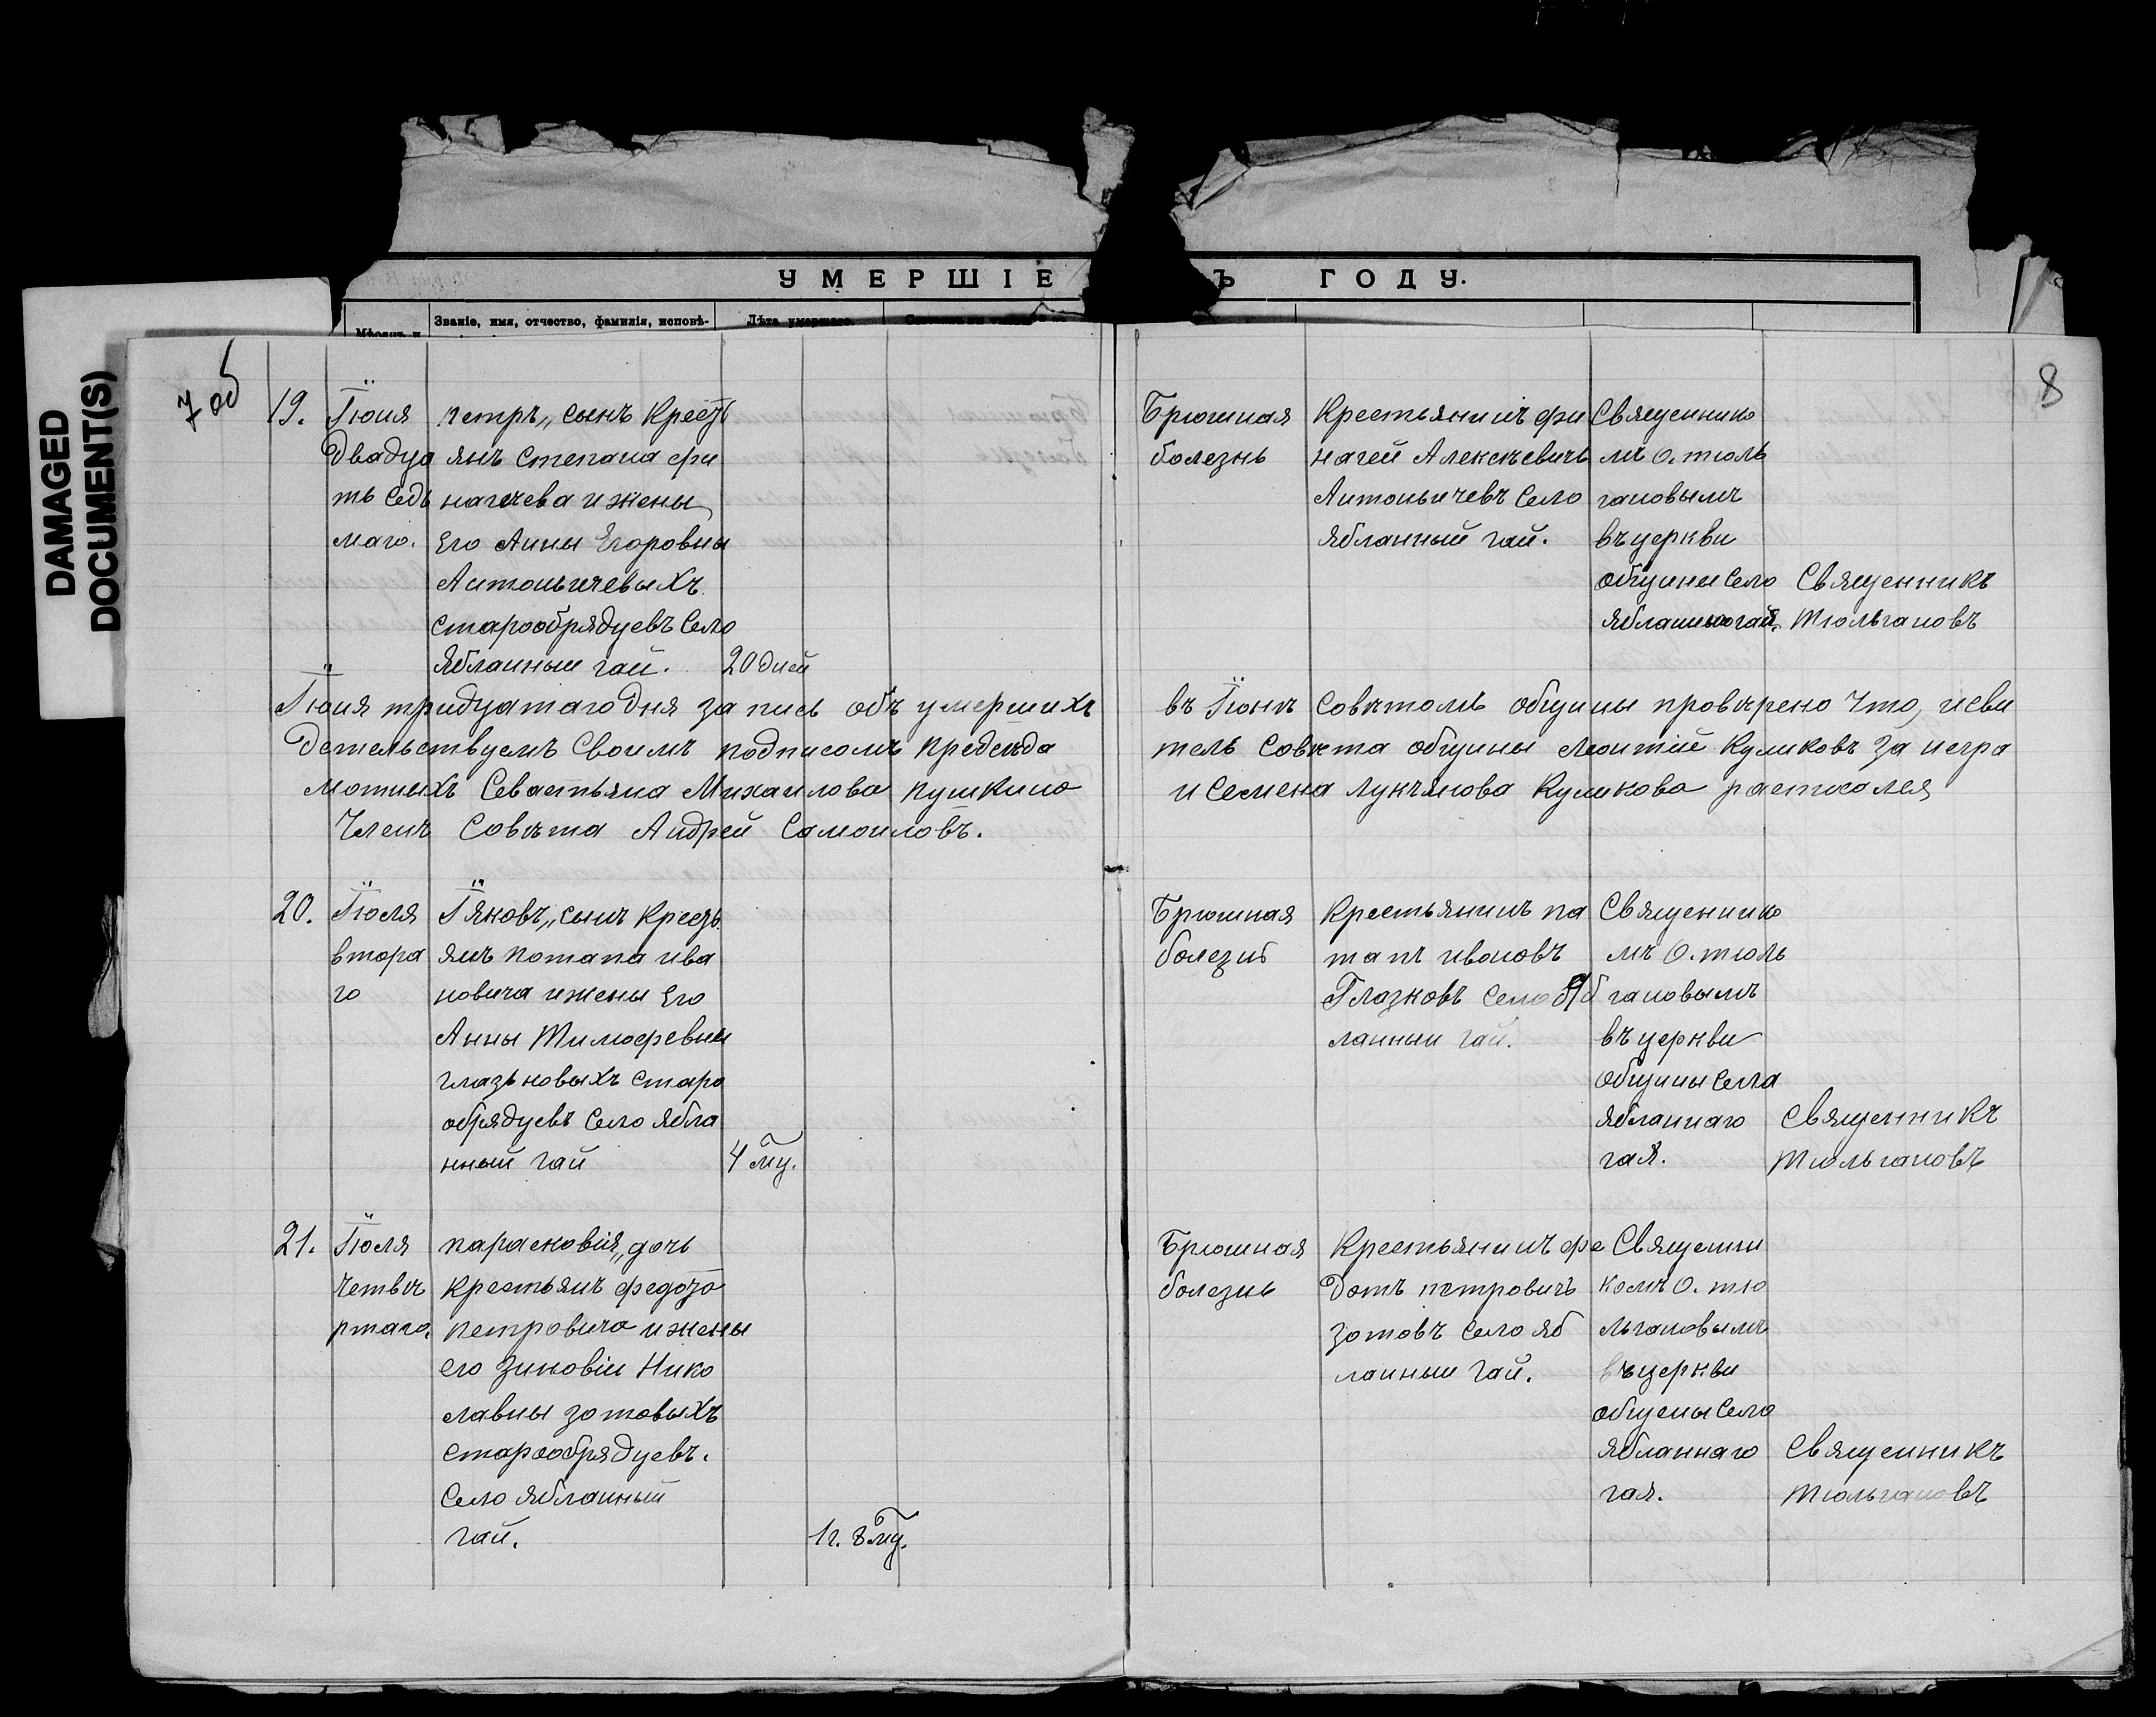 DAMAGED
DOCUMENT(S)
УМЕРШІЕ Ъ ГОДУ.
Званіе, имя, отчество, фамилія, исповѣ-
Лѣта умершаго.
7 об
8
19.
Іюня
Двадца
ть седь
маго.
петръ,, сынъ Крест
янъ Степана фи
Его Анны Егоровны
Антоньичевыхъ
старообрядцевъ Село
Ябланный гай.
20 дней
Брюшная
болезнь
Крестьянинъ фи
ногей Алексѣевичъ
Антоньичевъ Село
Ябланный гай.
Священнико
мъ О. тюль
гановымъ
въ церкви
общины Село
Священникъ
Тюльгановъ
Іюня тридцатаго Дня запись объ умершихъ въ Іюнѣ Совѣтомъ общины провѣрено Что, и сви
детельствуемъ Своимъ подписомъ предсѣда тель Совѣта общины Леонтий Куликовъ За негра
мотныхъ Севастьяна Михаилова пушкина и Семена Лукъянова Куликова расписался
Членъ Совѣта Андрей Самоиловъ.
20.
Іюля
втора
го
Іяковъ,, сынъ Крест
янъ потапа ива
новича и жены Его
Анны Тимофевны
глазьновыхъ старо
обрядцевъ Село Ябла
нный гай
4 мц.
Брюшная
болезнь
Крестьянинъ па
тапъ ивановъ
Глазковъ Село Яб
ланный гай.
Священнико
мъ О. тюль
гановымъ
въ церкви
общины Села
Ябланнаго
гая.
Священникъ
Тюльгановъ
21.
Іюля
Четвѣ
ртаго.
парасковія,, дочь
Крестьянъ федота
петровича и жены
его Зиновіи Нико
лавны зотовыхъ
старообрядцевъ.
Село Ябланный
гай.
1 г. 8 мц.
Брюшная
болезнь
Крестьянинъ фе
дотъ петровичъ
зотовъ Село Яб
ланный гай.
Священни
комъ О. тю
льгановымъ
въ церкви
общены Село
Ябланнаго
гая.
Священникъ
Тюльгановъ